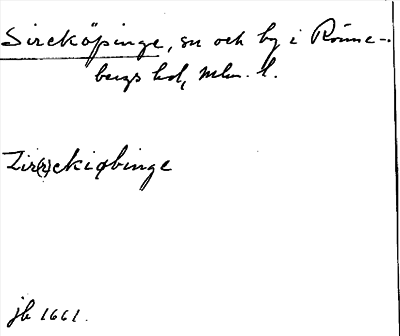 Sireköpinge, sn och by i Rönne-
bergs hd, Mlm. l.
Zir(r)ckiøbinge
jb 1661.